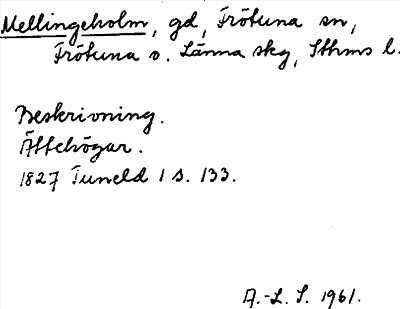 Mellingeholm, gd, Frötuna sn,
Frötuna o. Länna skg, Sthms l.
Beskrivning.
Ättehögar.
1827 Tuneld 1 s. 133.
A.-L. S. 1961.